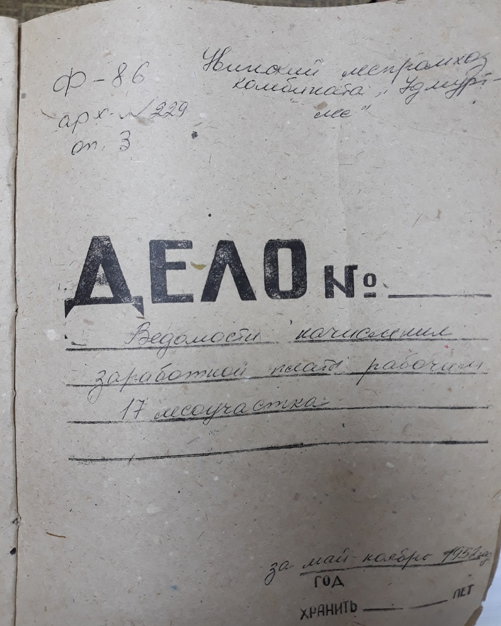 Ф-86
арх. №229
оп. 3
леспромхоз
комбината „Удмурт-
лес"
ДЕЛО №
Ведомости начисления
заработной платы рабочим
17 лесоучастка
за май-ноябрь
ГОД
ХРАНИТЬ ЛЕТ